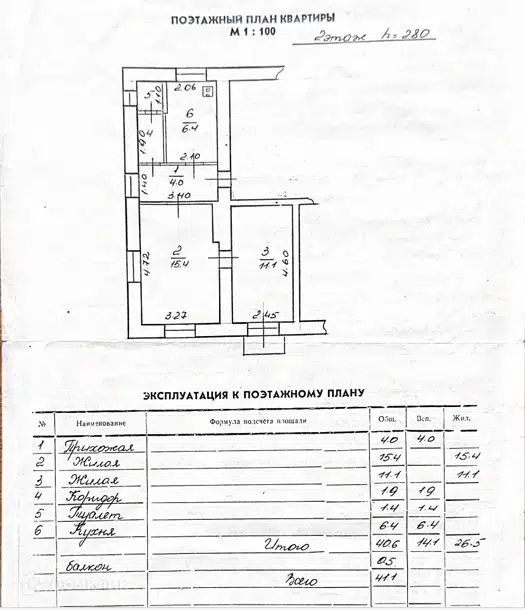 ПОЭТАЖНЫЙ ПЛАН КВАРТИРЫ
М 1 : 100
2этаж h=280
2.06
5
1.10
6
6.4
4
1.90
2.10
1
4.0
1.40
3.40
2
15.4
4.72
3
11.1
4.60
3.27
2.45
ЭКСПЛУАТАЦИЯ К ПОЭТАЖНОМУ ПЛАНУ
№ Наименование Формула подсчёта площади Общ. Всп. Жил.
1 Прихожая 4.0 4.0
2 Жилая 15.4 15.4
3 Жилая 11.1 11.1
4 Коридор 1.9 1.9
5 Туалет 1.4 1.4
6 Кухня 6.4 6.4
Итого 40.6 14.1 26.5
балкон 0.5
Всего 41.1